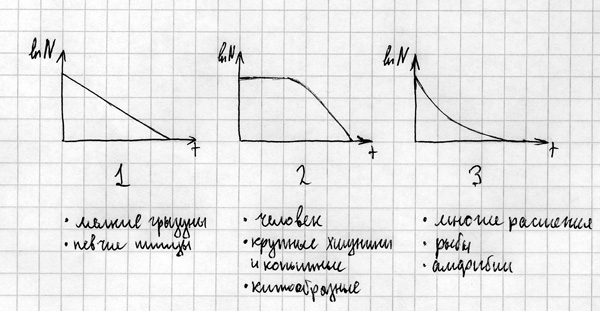 ln N
ln N
ln N
t
t
t
1
2
3
• мелкие грызуны
• певчие птицы
• человек
• крупные хищники
и копытные
• китообразные
• многие растения
• рыбы
• амфибии